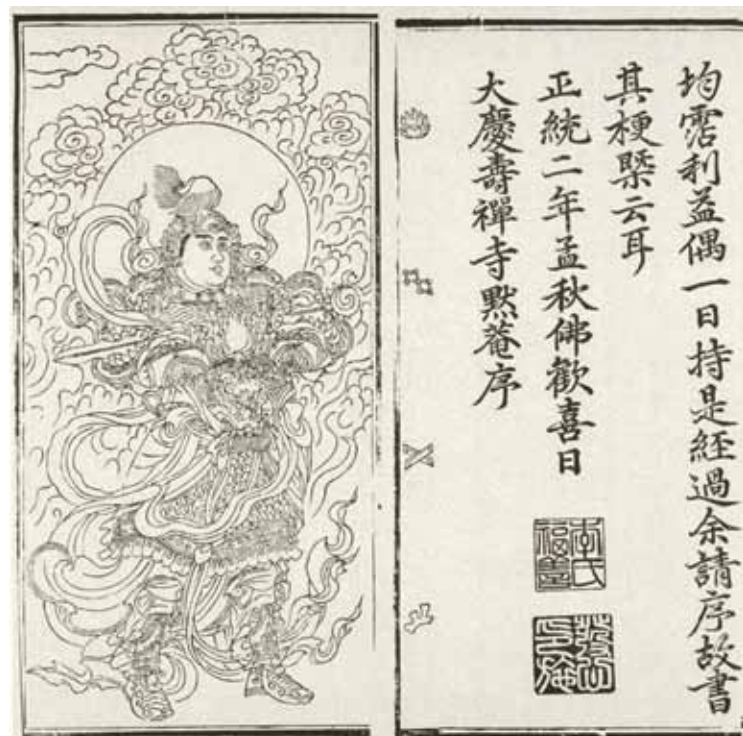 均霑利益偶一日持是經過余請序故書
其梗槩云耳
正統二年孟秋佛歡喜日
大慶壽禪寺黙菴序
李氏福善